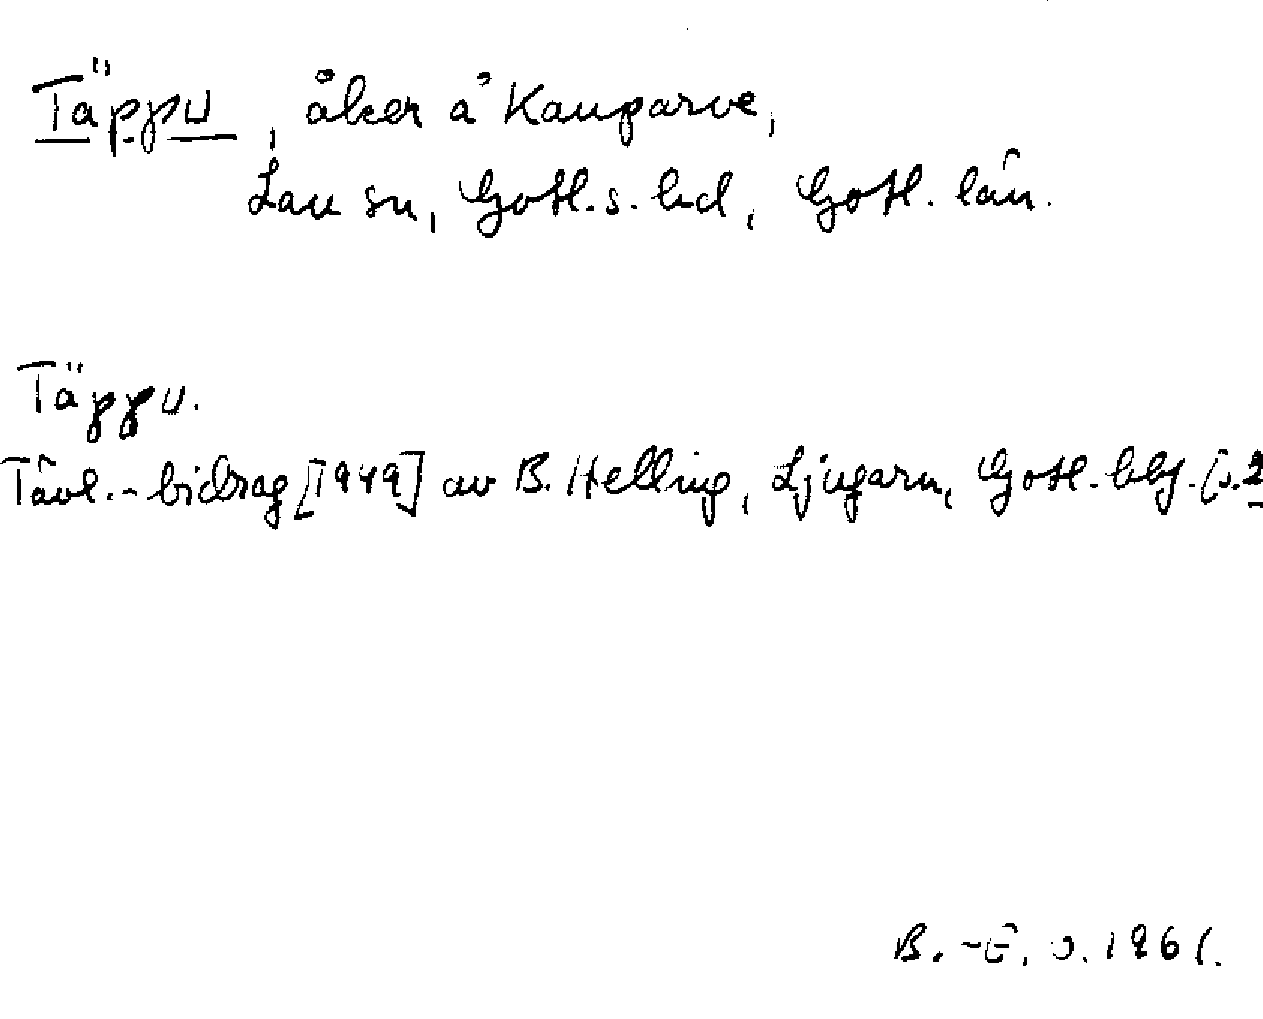 Täppu, åker å Kauparve,
Lau sn, Gotl. s. hd, Gotl. län.
Täppu.
Tävl.-bidrag [1949] av B. Helling, Ljugarn, Gotl. blg. s. 2
B.-E. O. 1961.